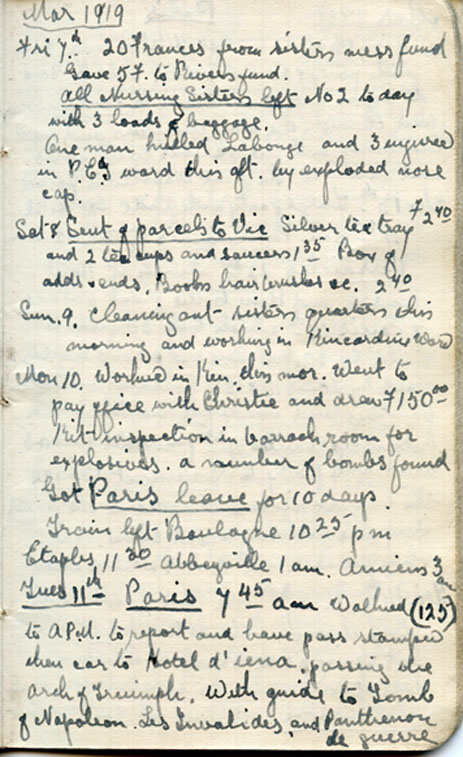 Mar 1919
Fri 7th. 20 Frances from sisters mess fund
Gave 5F. to Rivers fund.
All Nursing Sisters left No 2 to day
with 3 loads of baggage.
One man killed Labonge and 3 injured
in P.C.I ward this aft. by exploded nose
cap.
Sat 8 Sent of parcels to Vic Silver tea tray F2 40
and 2 tea cups and saucers 1 35 Box of
odds & ends, Books hair brushes &c. 2 40
Sun. 9. Cleaning out sisters quarters this
morning and working in Kincardine Ward
Mon 10. Worked in Kin. this mor. Went to
pay office with Christie and drew F150 00
Kit inspection in barrack room for
explosives. a number of bombs found
Got Paris leave for 10 days.
Train left Boulogne 10 25 pm
Etaples 11 30 Abbeyville 1 am. Amiens 3 am
Tues 11th Paris 7 45 am Walked (125)
to A.P.M. to report and have pass stamped
then car to Hotel d'iena. passing the
Arch of Triumph. With guide to Tomb
of Napoleon. Les Invalides, and Panthenon
de guerre